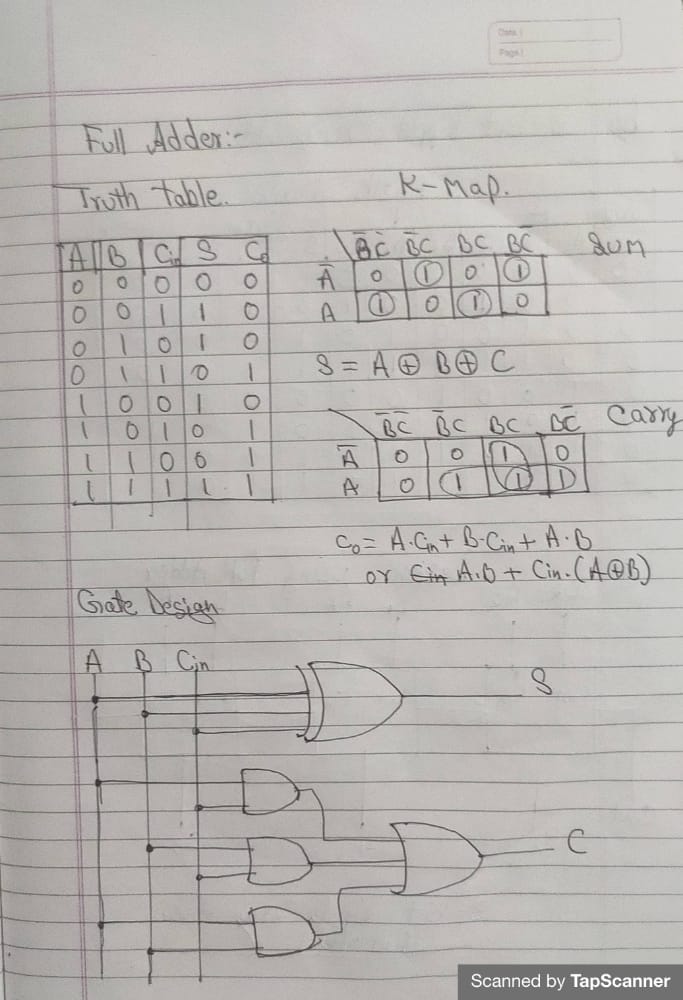 Date |
Page |
Full Adder:-
Truth table.
K-Map.
A B Cin S Co
0 0 0 0 0
0 0 1 1 0
0 1 0 1 0
0 1 1 0 1
1 0 0 1 0
1 0 1 0 1
1 1 0 0 1
1 1 1 1 1
B̅C̅ B̅C BC BC̅ Sum
A̅ 0 1 0 1
A 1 0 1 0
S = A ⊕ B ⊕ C
B̅C̅ B̅C BC BC̅ Carry
A̅ 0 0 1 0
A 0 1 1 1
Co = A.Cin + B.Cin + A.B
or Cin A.B + Cin.(A⊕B)
Gate Design
A B Cin
S
C
Scanned by TapScanner